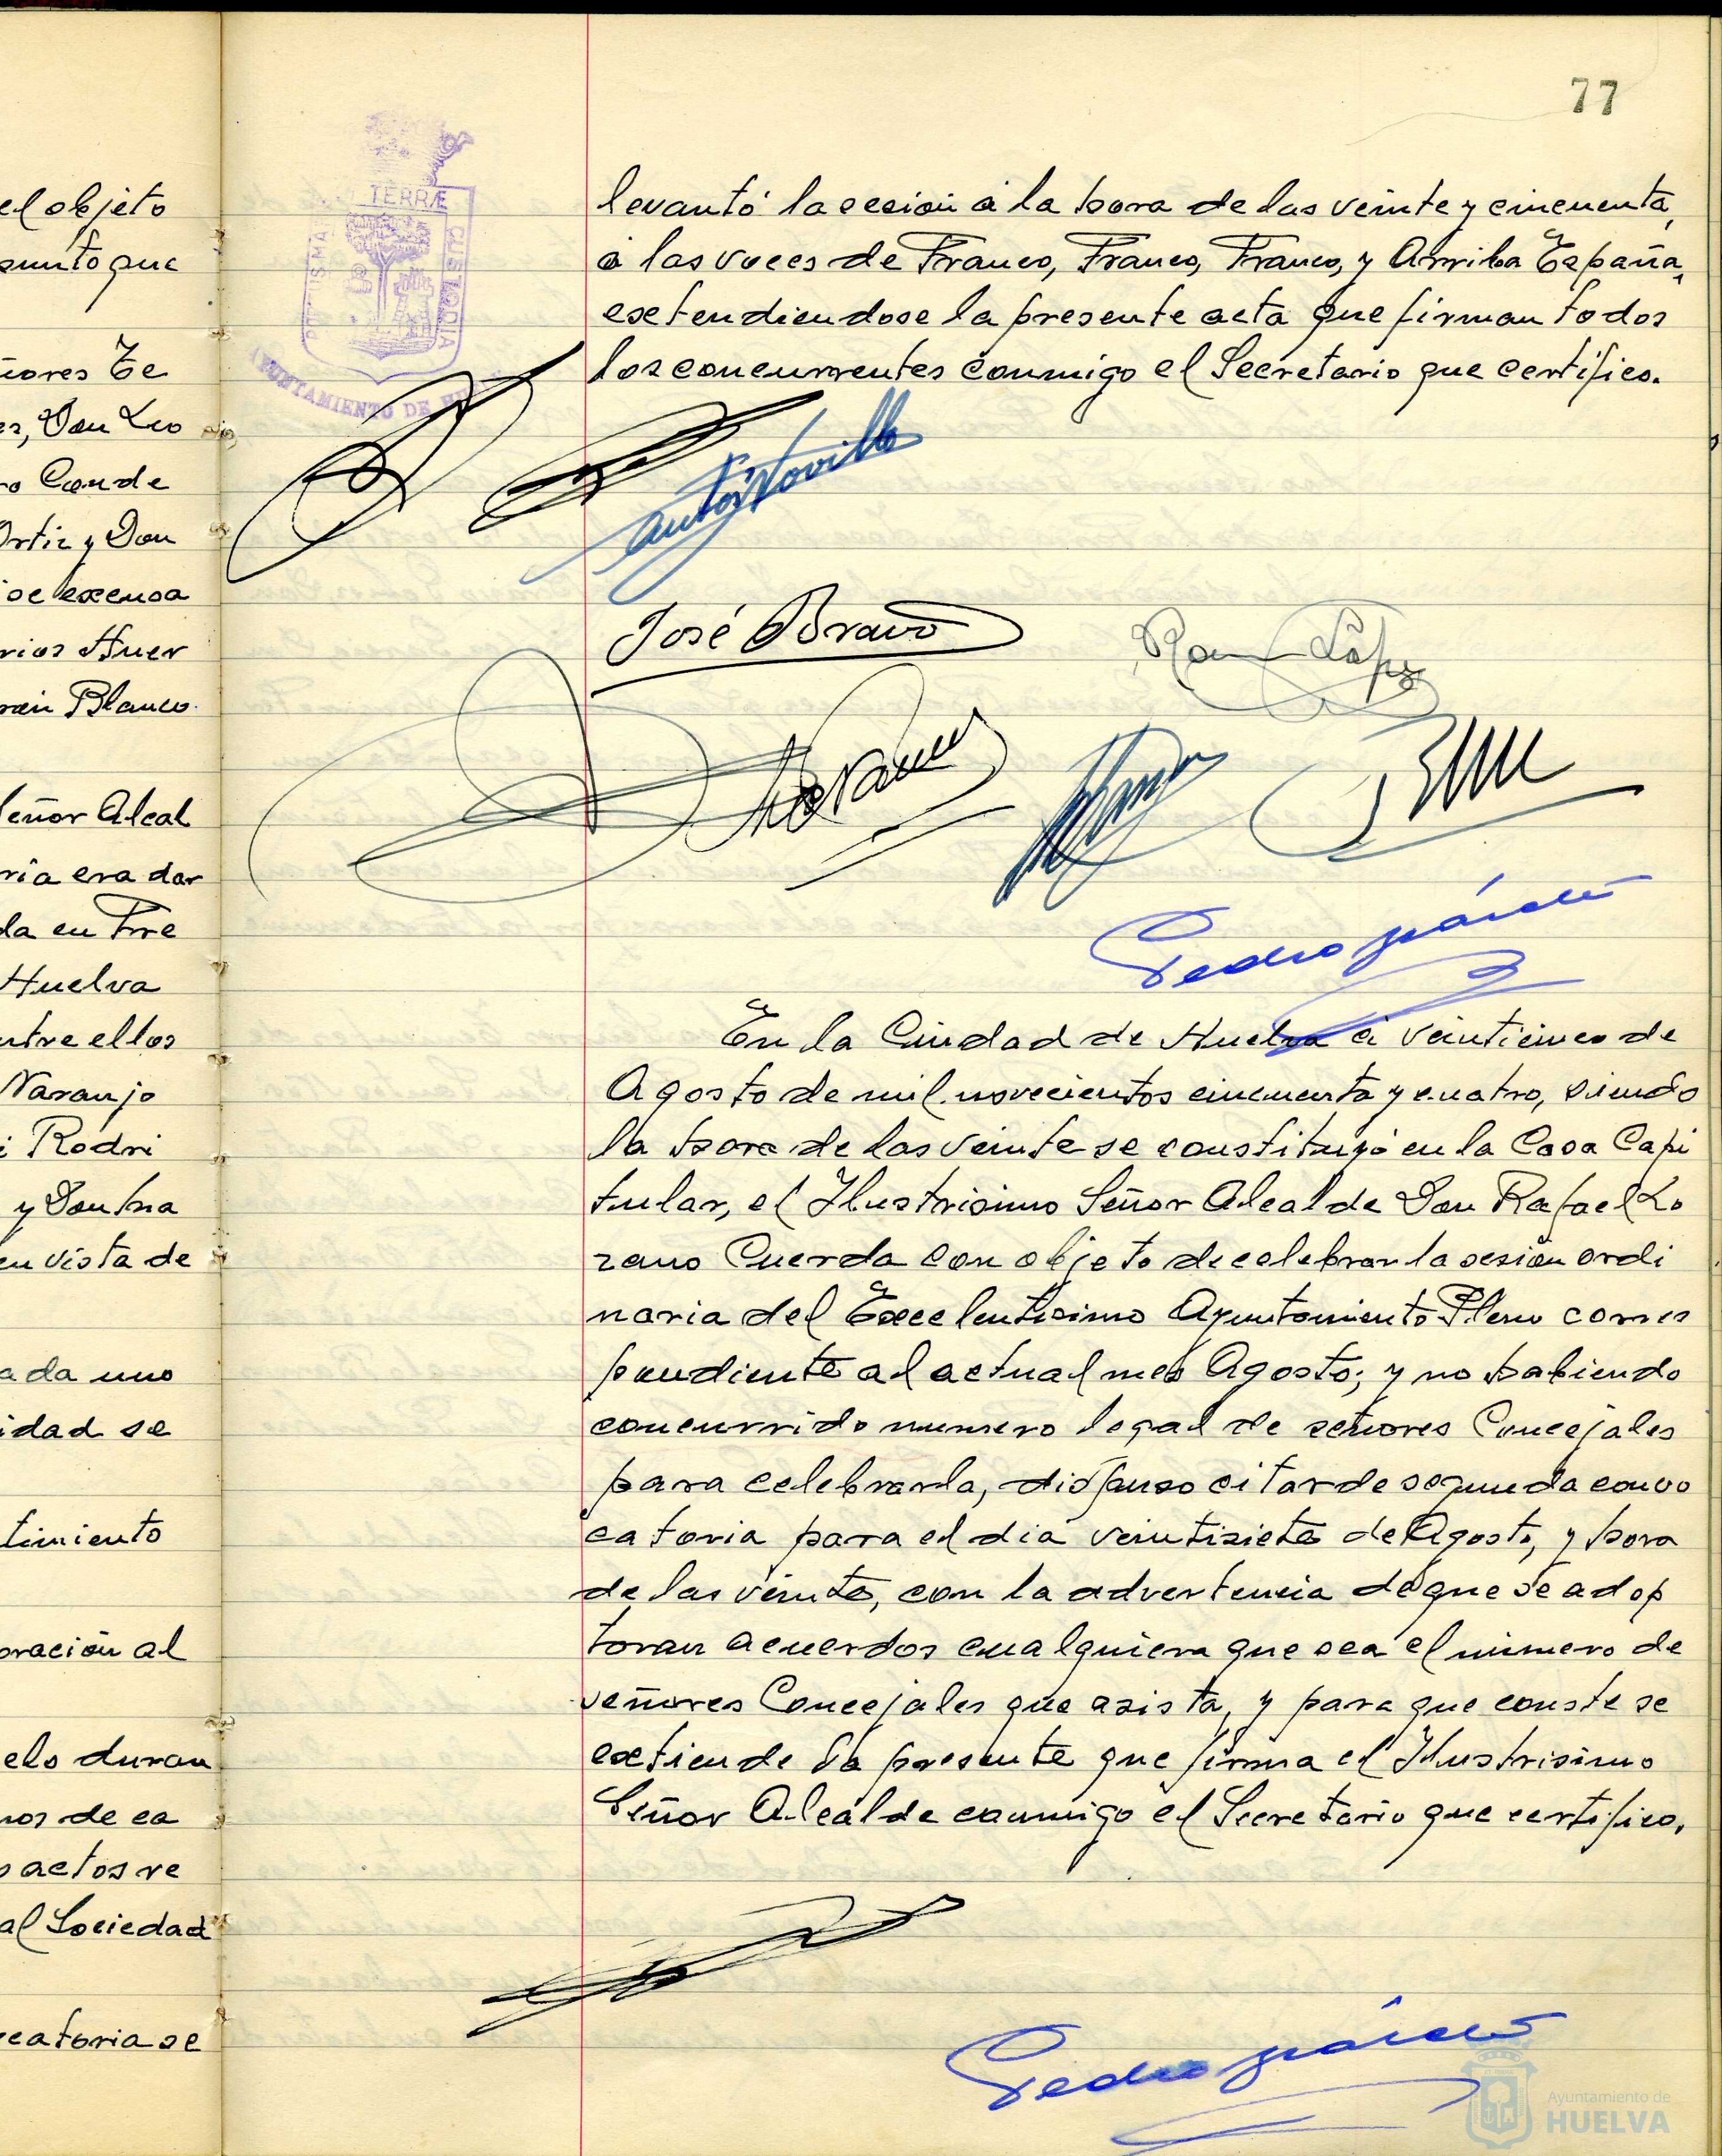 el objeto
sunto que
ñores Te
es, Don Leo
ro Conde
Ortiz y Don
se excusa
rios Huer
ran Blanco.
Señor Alcal
ria era dar
da en Pre
Huelva
ntre ellos
Naranjo
i Rodri
y Don Ina
en vista de
ada uno
idad se
timiento
oración al
elo duran
nos de ca
actos re
al Sociedad
catoria se
77
TERRÆ
CUSTODIA
AYUNTAMIENTO DE HU
levantó la sesion á la hora de las veinte y cincuenta,
á las voces de Franco, Franco, Franco, y Arriba España,
extendiendose la presente acta que firman todos
los concurrentes conmigo el Secretario que certifico.
José Bravo
En la Ciudad de Huelva á veinticinco de
Agosto de mil novecientos cincuenta y cuatro, siendo
la hora de las veinte se constituyó en la Casa Capi
tular, el Ilustrisimo Señor Alcalde Don Rafael Lo
zano Cuerda con objeto de celebrar la sesión ordi
naria del Excelentisimo Ayuntamiento Pleno corres
pondiente al actual mes Agosto; y no habiendo
concurrido numero legal de señores Concejales
para celebrarla, dispuso citar de segunda convo
catoria para el dia veintisiete de Agosto, y hora
de las veinte, con la advertencia de que se adop
toran acuerdos cualquiera que sea el número de
señores Concejales que asista, y para que conste se
extiende la presente que firma el Ilustrisimo
Señor Alcalde conmigo el Secretario que certifico.
Ayuntamiento de
HUELVA